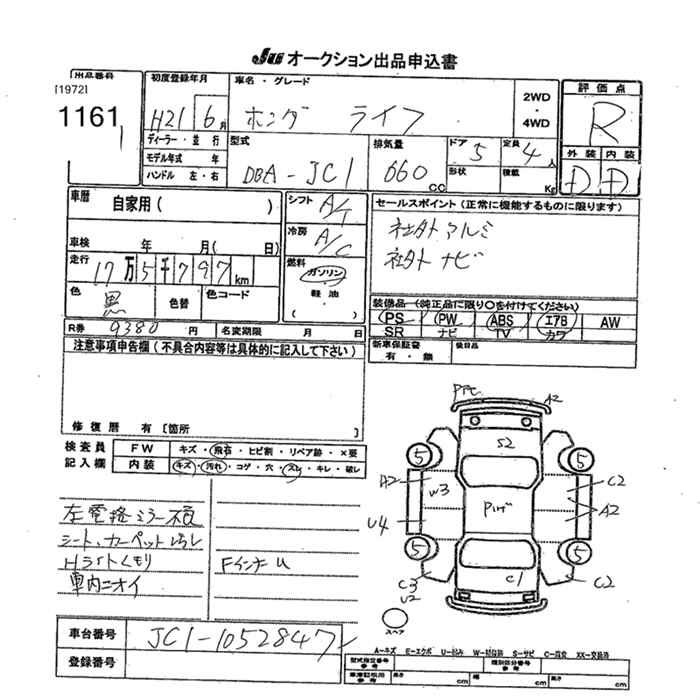 Ju オークション出品申込書
出品番号
[1972]
1161
初度登録年月
H21 6月
車名・グレード
ホンダ ライフ
2WD
・
4WD
評価点
R
外装 内装
D D
ディーラー・並行
モデル年式 年
ハンドル 左・右
型式
DBA-JC1
排気量
660 CC
ドア 5
形状
定員 4人
積載 Kg
車歴
自家用( )
車検 年 月(日)
走行 17万5千797km
色 黒
色替
色コード
シフト A/T
冷房 A/C
燃料
ガソリン
軽油
( )
セールスポイント(正常に機能するものに限ります)
社外アルミ
社外ナビ
装備品(純正品に限り○を付けてください)
PS PW ABS エアB AW
SR ナビ TV カワ
新車保証書 有・無
後日品
R券 9380円
名変期限 月 日
注意事項申告欄(不具合内容等は具体的に記入して下さい)
修復歴 有[箇所 ]
検査員
記入欄
FW キズ・飛石・ヒビ割・リペア跡・×要
内装 キズ・汚れ・コゲ・穴・スレ・キレ・破レ
左電格ミラー不良
シート、カーペット汚れ
Hライトくもり
車内ニオイ
FインナーU
A2
S2
5
5
A2
W3
Pハゲ
C2
A2
U4
5
5
C3
U2
C1
C2
スペア
車台番号 JC1-1052847
登録番号
A-キズ E-エクボ U-凹み W-補修跡 S-サビ C-腐食 XX-交換済
型式指定番号
参考
類別区分番号
参考
車庫証明用
参考
長さ cm 幅 cm 高さ cm